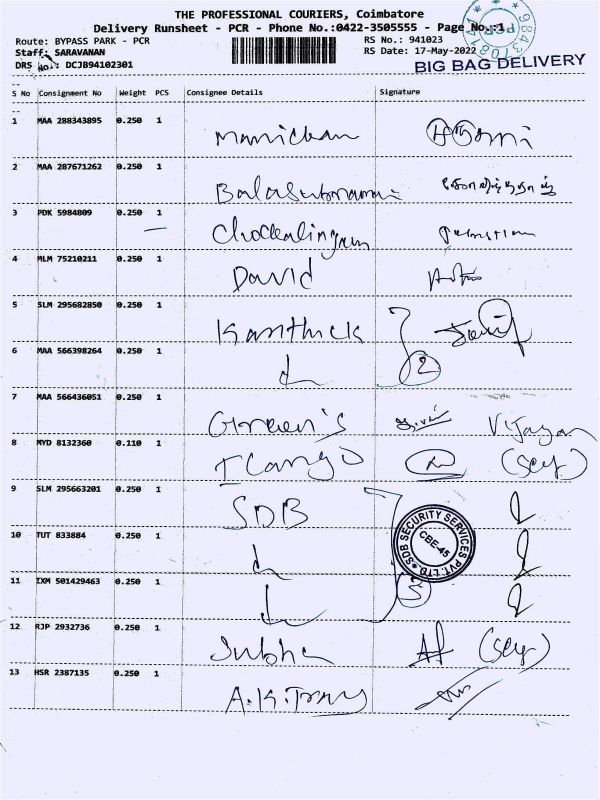 THE PROFESSIONAL COURIERS, Coimbatore
Delivery Runsheet - PCR - Phone No.:0422-3505555 - Page No.:1
Route: BYPASS PARK - PCR
RS No.: 941023
Staff: SARAVANAN
RS Date: 17-May-2022
DRS No.: DCJB94102301
BIG BAG DELIVERY
S No Consignment No Weight PCS Consignee Details Signature
1 MAA 288343895 0.250 1 Manickam
2 MAA 287671262 0.250 1 Balasubramani
3 PDK 5984809 0.250 1 Chockalingam
4 MLM 75210211 0.250 1 David
5 SLM 295682850 0.250 1 Karthick
6 MAA 566398264 0.250 1 2
7 MAA 566436051 0.250 1 Green's Vijayan
8 MYD 8132360 0.110 1 I Cargo
9 SLM 295663201 0.250 1 SDB
SDB SECURITY SERVICES PVT. LTD
CBE-45
10 TUT 833884 0.250 1
11 IXM 501429463 0.250 1 3
12 RJP 2932736 0.250 1 Subha
13 HSR 2387135 0.250 1 A.K.